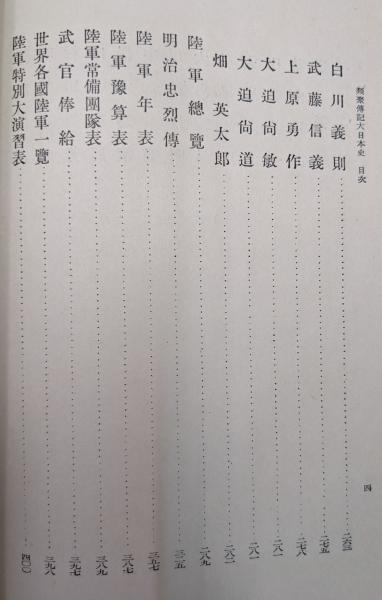 類聚傳記大日本史 目次
四
白川義則……二六三
武藤信義……二七五
上原勇作……二七八
大迫尙敏……二八一
大迫尙道……二八一
畑英太郎……二八二
陸軍總覽……二八九
明治忠烈傳……三一五
陸軍年表……三五七
陸軍豫算表……三八七
陸軍常備團隊表……三八九
武官俸給……三九七
世界各國陸軍一覽……三九八
陸軍特別大演習表……四〇〇